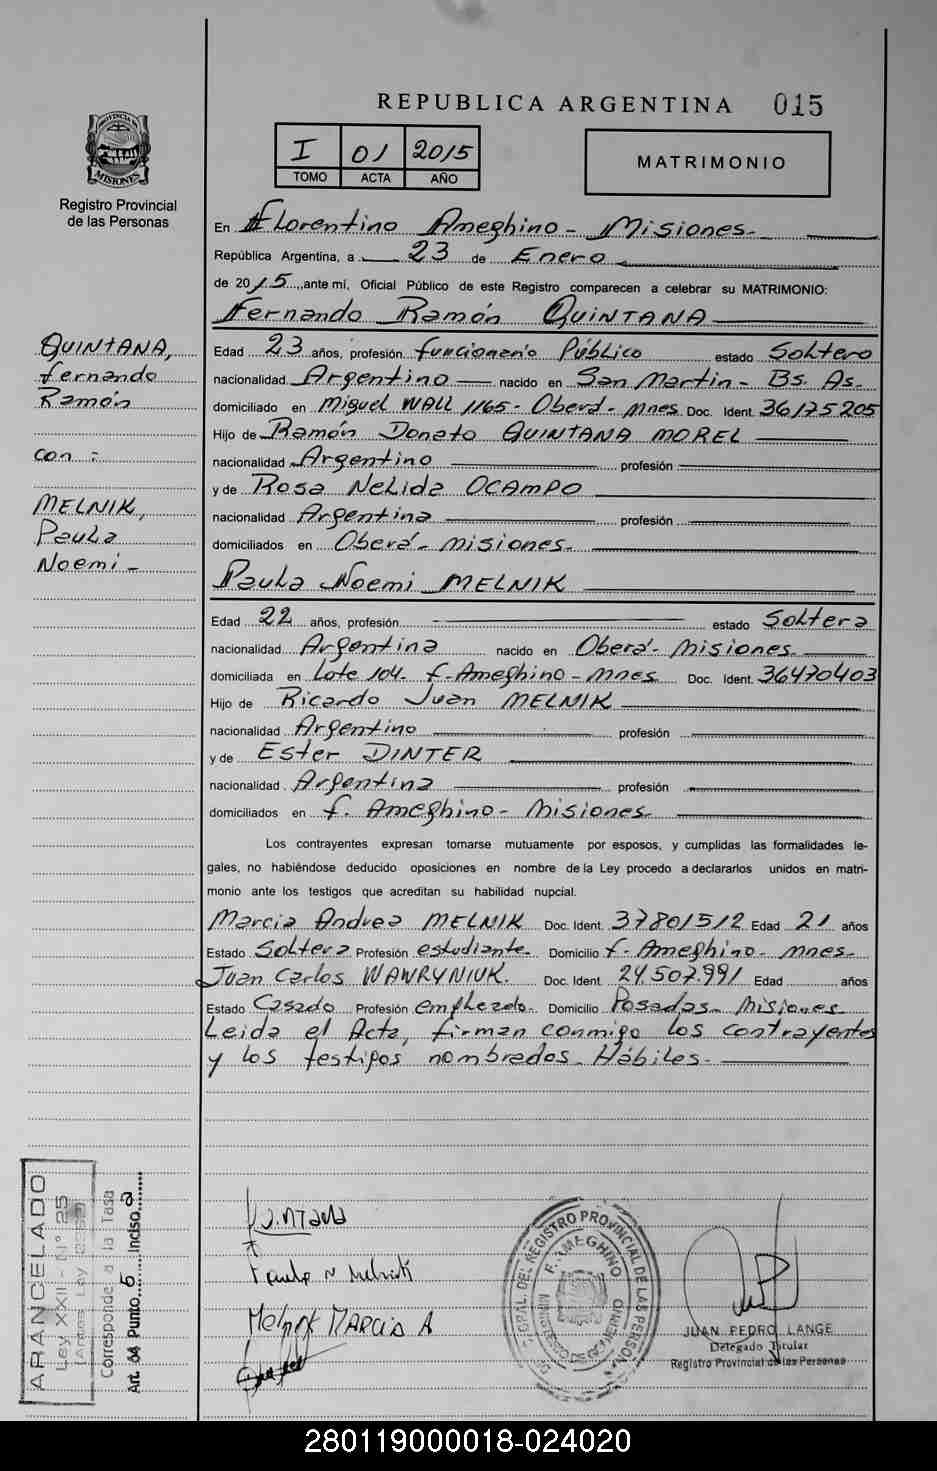 REPUBLICA ARGENTINA 015
PROVINCIA DE
MISIONES
Registro Provincial
de las Personas
I 01 2015
TOMO ACTA AÑO
MATRIMONIO
En Florentino Ameghino - Misiones.
República Argentina, a 23 de Enero
de 2015, ante mí, Oficial Público de este Registro comparecen a celebrar su MATRIMONIO:
Fernando Ramón QUINTANA
QUINTANA,
Fernando
Ramón
con :
MELNIK,
Paula
Noemi -
Edad 23 años, profesión funcionario Público estado Soltero
nacionalidad Argentino nacido en San Martin - Bs. As.
domiciliado en Miguel WALL 1165 - Oberá - Mnes. Doc. Ident. 36175205
Hijo de Ramón Donato QUINTANA MOREL
nacionalidad Argentino profesión
y de Rosa Nelida OCAMPO
nacionalidad Argentina profesión
domiciliados en Oberá - Misiones.
Paula Noemi MELNIK
Edad 22 años, profesión estado Soltera
nacionalidad Argentina nacido en Oberá - Misiones.
domiciliada en Lote 104 - F. Ameghino - Mnes. Doc. Ident. 36470403
Hijo de Ricardo Juan MELNIK
nacionalidad Argentino profesión
y de Ester DINTER
nacionalidad Argentina profesión
domiciliados en F. Ameghino - Misiones.
Los contrayentes expresan tomarse mutuamente por esposos, y cumplidas las formalidades le-
gales, no habiéndose deducido oposiciones en nombre de la Ley procedo a declararlos unidos en matri-
monio ante los testigos que acreditan su habilidad nupcial.
Marcia Andrea MELNIK Doc. Ident. 37801512 Edad 21 años
Estado Soltera Profesión estudiante. Domicilio F. Ameghino - Mnes.
Juan Carlos WAWRYNIUK. Doc. Ident. 24.507.991 Edad años
Estado Casado Profesión empleado. Domicilio Posadas - Misiones.
Leida el Acta, firman conmigo los contrayentes
y los testigos nombrados - Hábiles.
ARANCELADO
Ley XXII - N° 25
Corresponde a la Tasa
Art. 64 Punto 5 Inciso a
Quintana
Paula N Melnik
Melnik MARCIA A
REGISTRO PROVINCIAL DE LAS PERSONAS
F. AMEGHINO
JUAN PEDRO LANGE
Delegado Titular
Registro Provincial de las Personas
280119000018-024020